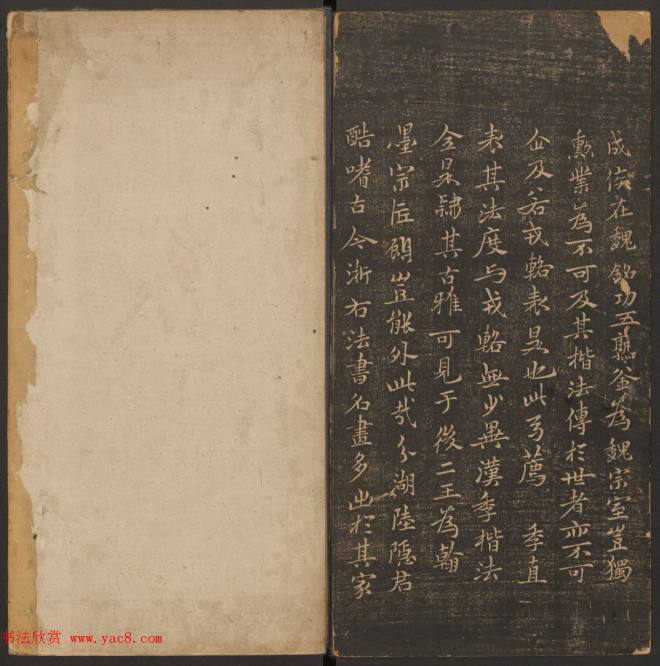 成侯在魏銘功五熟釜為魏宗室豈獨
勲業為不可及其楷法傳於世者亦不可
企及若戎輅表是也此乃薦 季直
表其法度与戎輅無少異漢季楷法
全是隸其古雅可見于後二王為翰
墨宗匠頋豈能外此哉分湖陸隱君
酷嗜古今浙右法書名畫多出於其家
书法欣赏 www.yac8.com